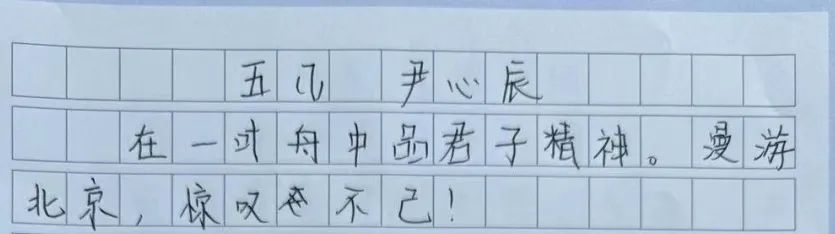 五几 尹心辰
在一舟中品君子精神。漫游
北京,惊叹不己!